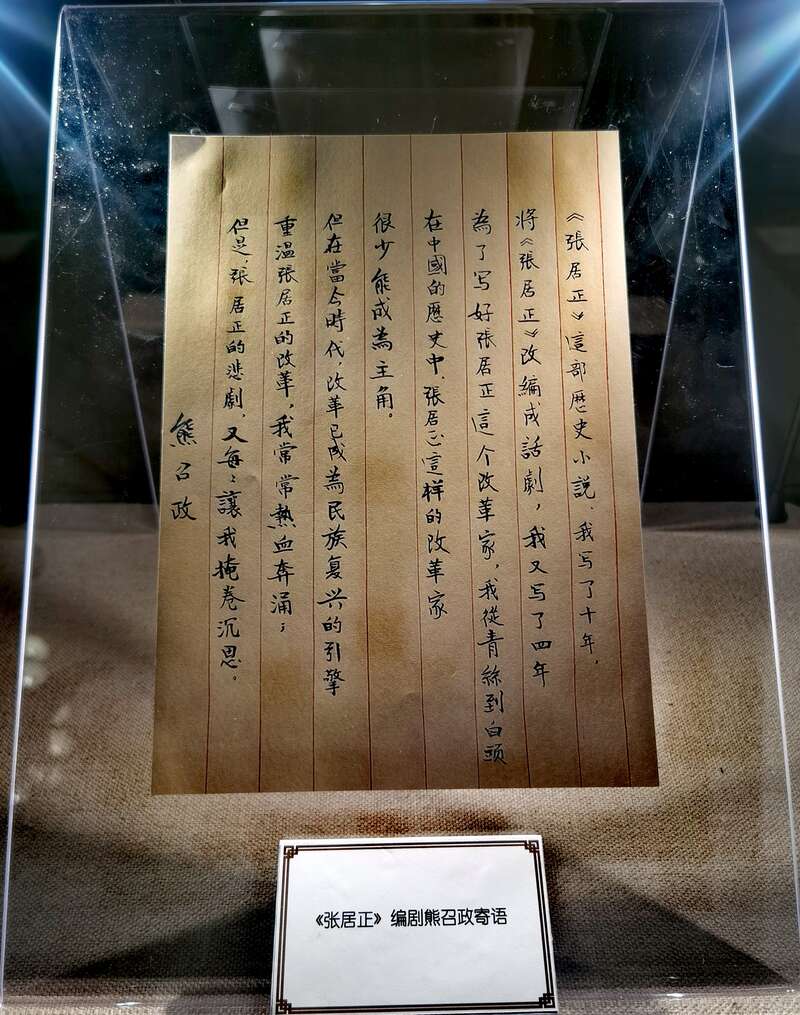 《張居正》這部歷史小說、我写了十年，
將《張居正》改編成話劇，我又写了四年
為了写好張居正這个改革家，我從青絲到白頭
在中國的歷史中，張居正這样的改革家
很少能成為主角。
但在當今時代，改革已成為民族复兴的引擎
重溫張居正的改革，我常常熱血奔涌；
但是，張居正的悲劇，又每〻讓我掩卷沉思。
熊召政
《张居正》编剧熊召政寄语